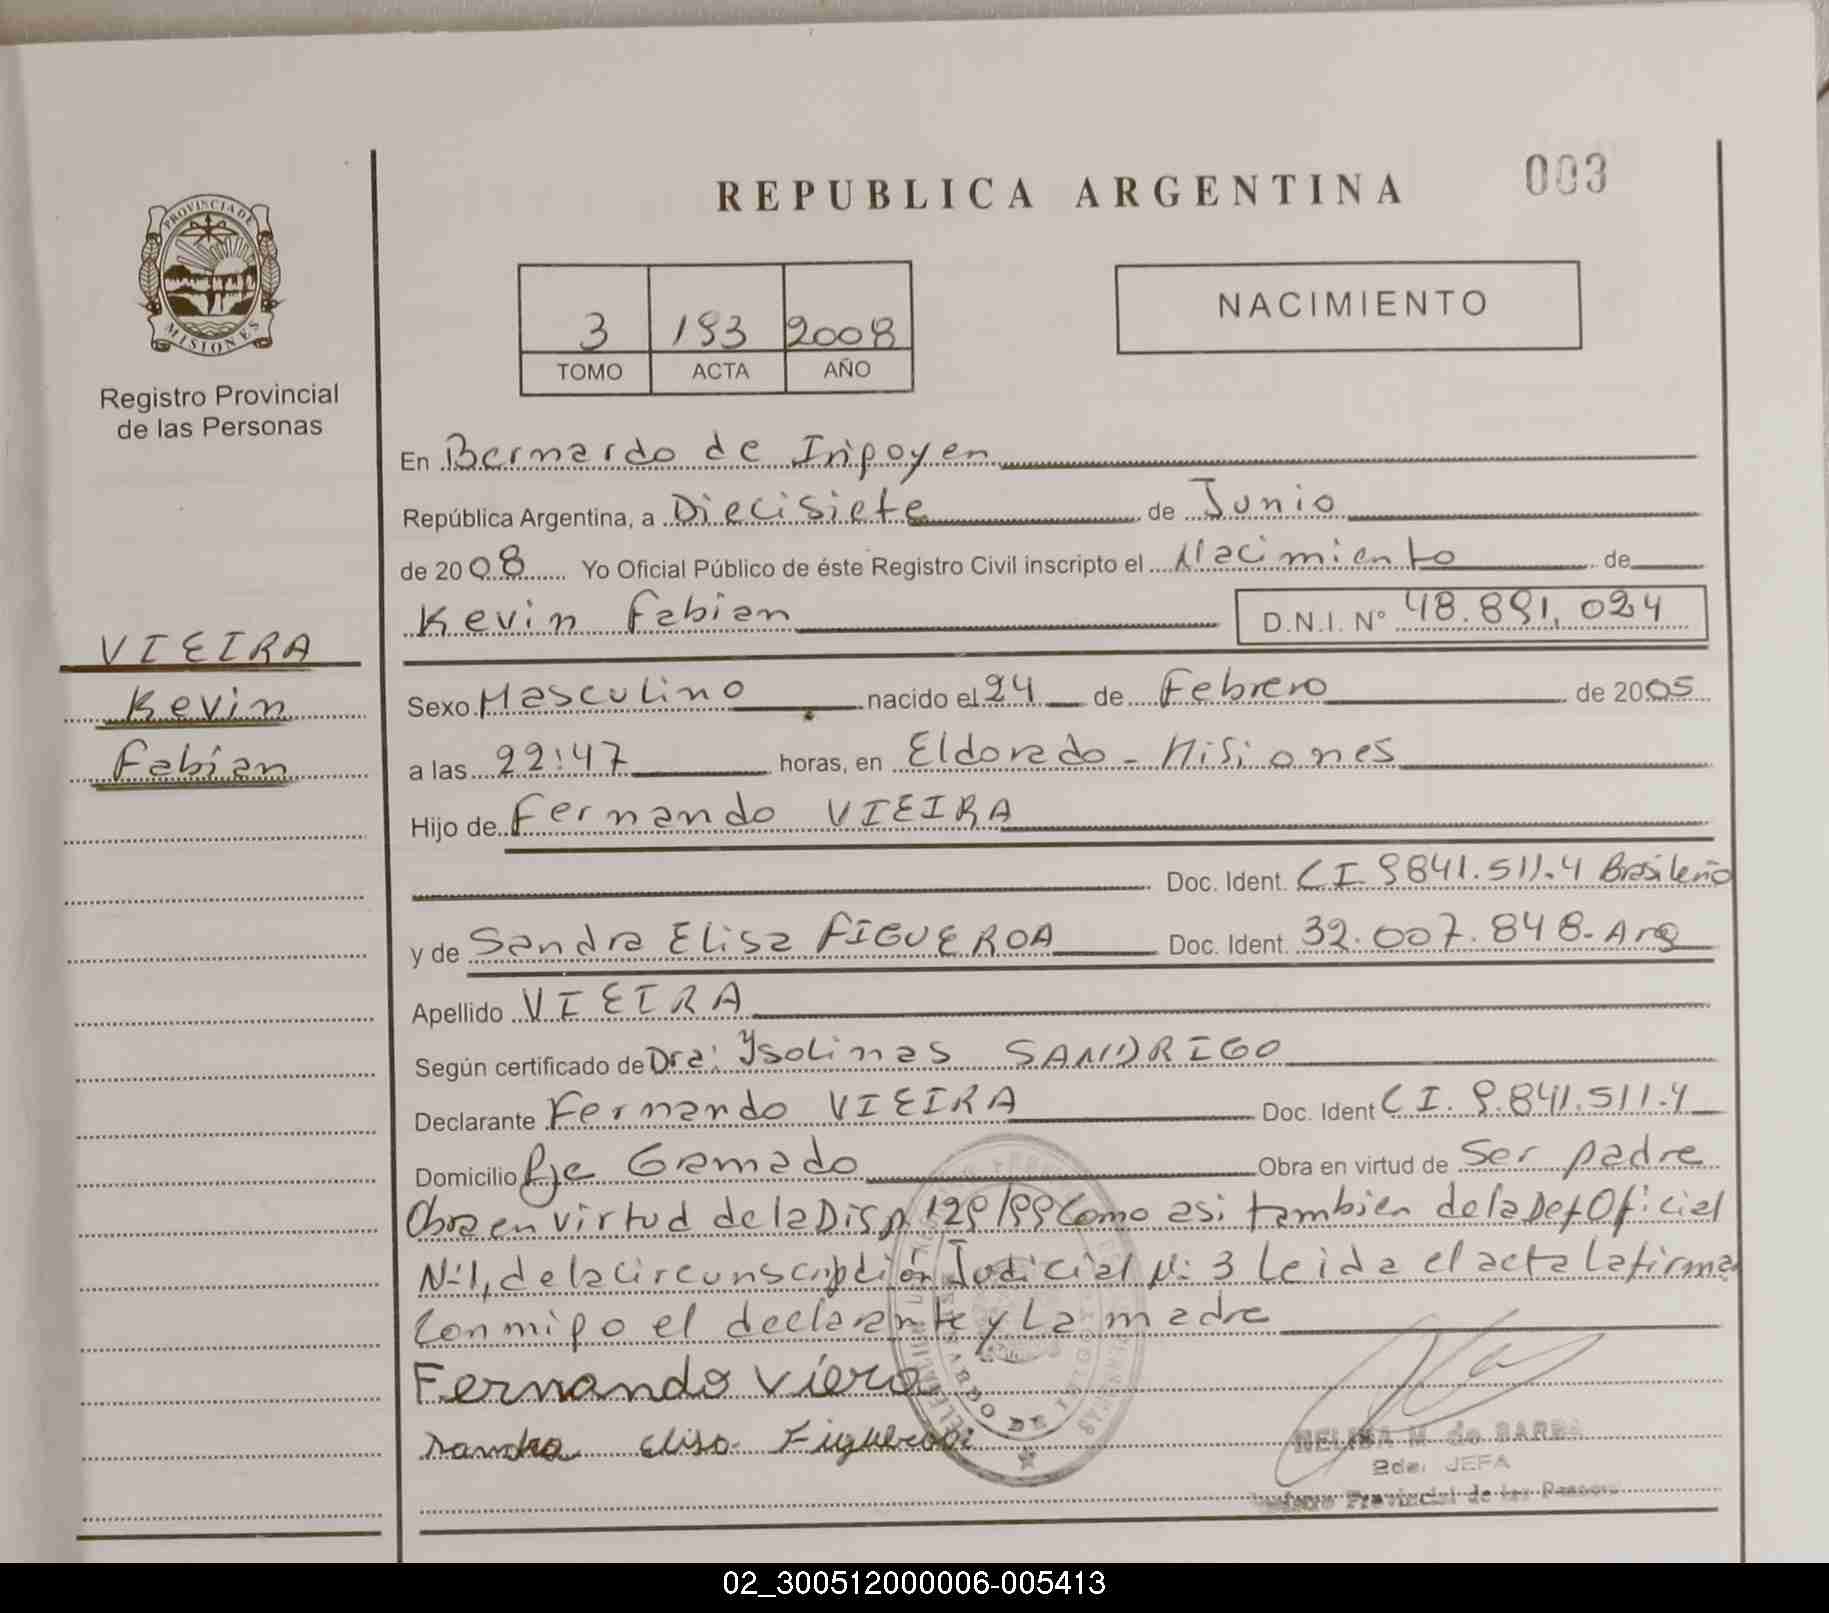 003
REPUBLICA ARGENTINA
PROVINCIA DE
MISIONES
3 193 2008
TOMO ACTA AÑO
NACIMIENTO
Registro Provincial
de las Personas
En Bernardo de Iripoyen
República Argentina, a Diecisiete de Junio
de 2008 Yo Oficial Público de éste Registro Civil inscripto el Nacimiento de
Kevin Fabian D.N.I. Nº 48.891.024
VIEIRA
Kevin
Fabian
Sexo Masculino nacido el 24 de Febrero de 2005
a las 22:47 horas, en Eldorado - Misiones
Hijo de Fernando VIEIRA
Doc. Ident. CI 9841.511.4 Brasileño
y de Sandra Elisa FIGUEROA Doc. Ident. 32.007.848- Arg
Apellido VIEIRA
Según certificado de Dra: Ysolinas SANDRIGO
Declarante Fernando VIEIRA Doc. Ident CI. 9.841.511.4
Domicilio Pje Gramado Obra en virtud de Ser padre
Obra en virtud de la Disp 129/99 Como asi tambien de la Def Oficial
Nº1, de la circunscripción Judicial Nº 3 Leida el acta la firma
Conmigo el declarante y La madre
Fernando Viera
Sandra Elisa Figueroa
NELIDA M. de BARBA
2da. JEFA
Registro Provincial de las Personas
02_300512000006-005413